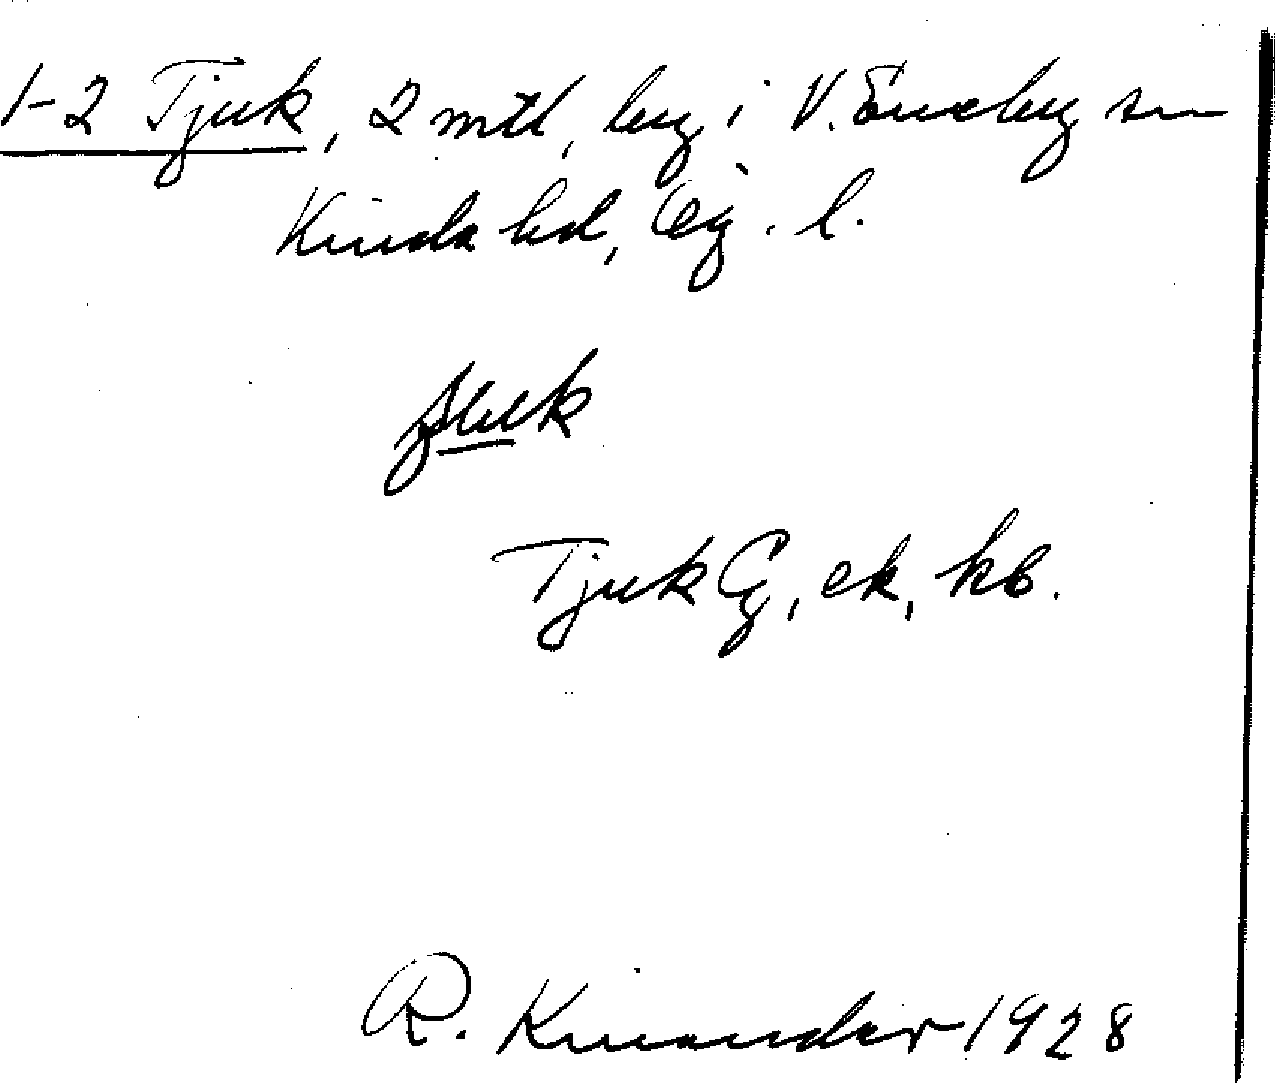 1-2 Tjuk, 2 mtl, by i V. Eneby sn
Kinda hd, Ög. l.
Tjuk G, ek, kb.
R. Kinander 1928